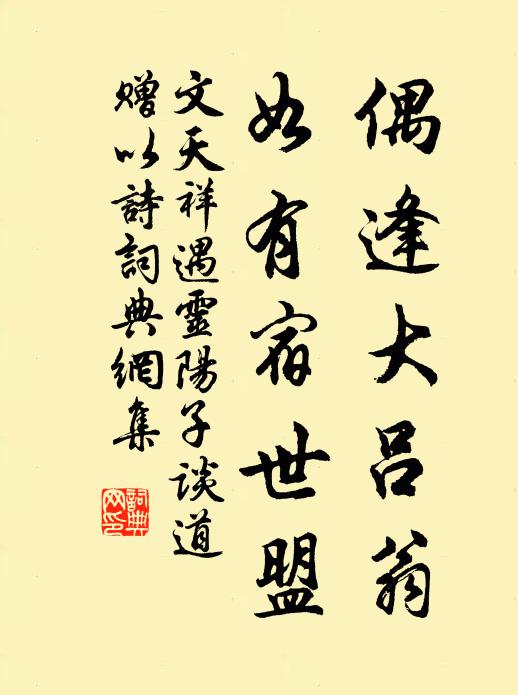 偶逢大呂翁
如有宿世盟
文天祥遇靈陽子談道
贈以詩詞典網集
詞典网印